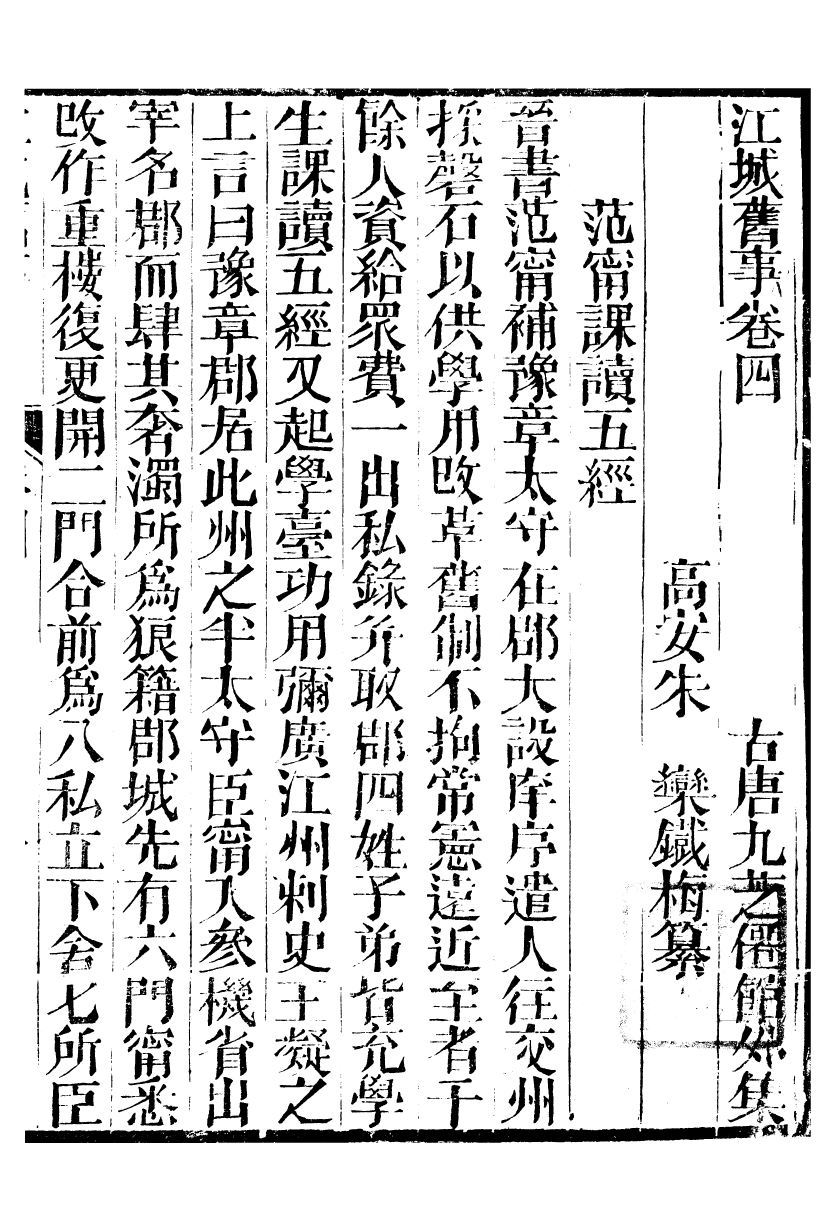 江城舊事卷四　古唐九芝僊館外集
高安朱　欒鐵梅纂
范甯課讀五經
晉書范甯補豫章太守在郡大設庠序遣人往交州
採磬石以供學用改革舊制不拘常憲遠近至者千
餘人資給眾費一出私錄并取郡四姓子弟皆充學
生課讀五經又起學臺功用彌廣江州刺史王凝之
上言曰豫章郡居此州之半太守臣甯入參機省出
宰名郡而肆其奢濁所爲狼籍郡城先有六門甯悉
改作重樓復更開二門合前爲八私立下舍七所臣